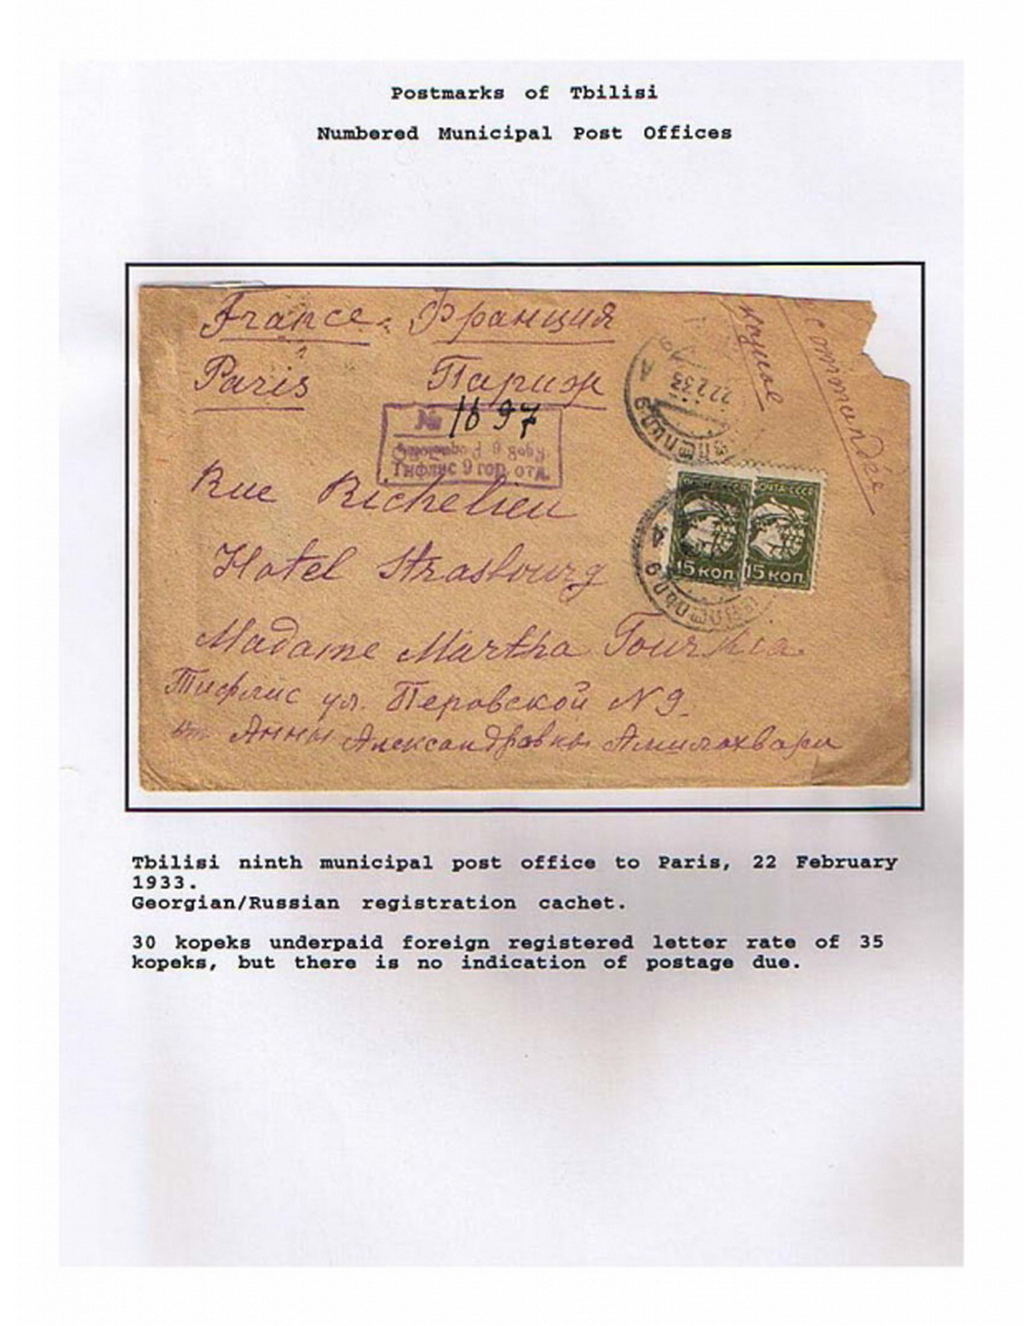 Postmarks of Tbilisi
Numbered Municipal Post Offices
France. Франция
Paris Париж
№ 1697
Тифлис 9 гор. отд.
Rue Richelieu
Hotel Strasbourg
Madame Martha Tourkia
Тифлис ул. Перовской N 9
от Анны Александровны Амилохвари
22.2.33
ПОЧТА СССР ПОЧТА СССР
15 коп. 15 коп.
Tbilisi ninth municipal post office to Paris, 22 February
1933.
Georgian/Russian registration cachet.
30 kopeks underpaid foreign registered letter rate of 35
kopeks, but there is no indication of postage due.